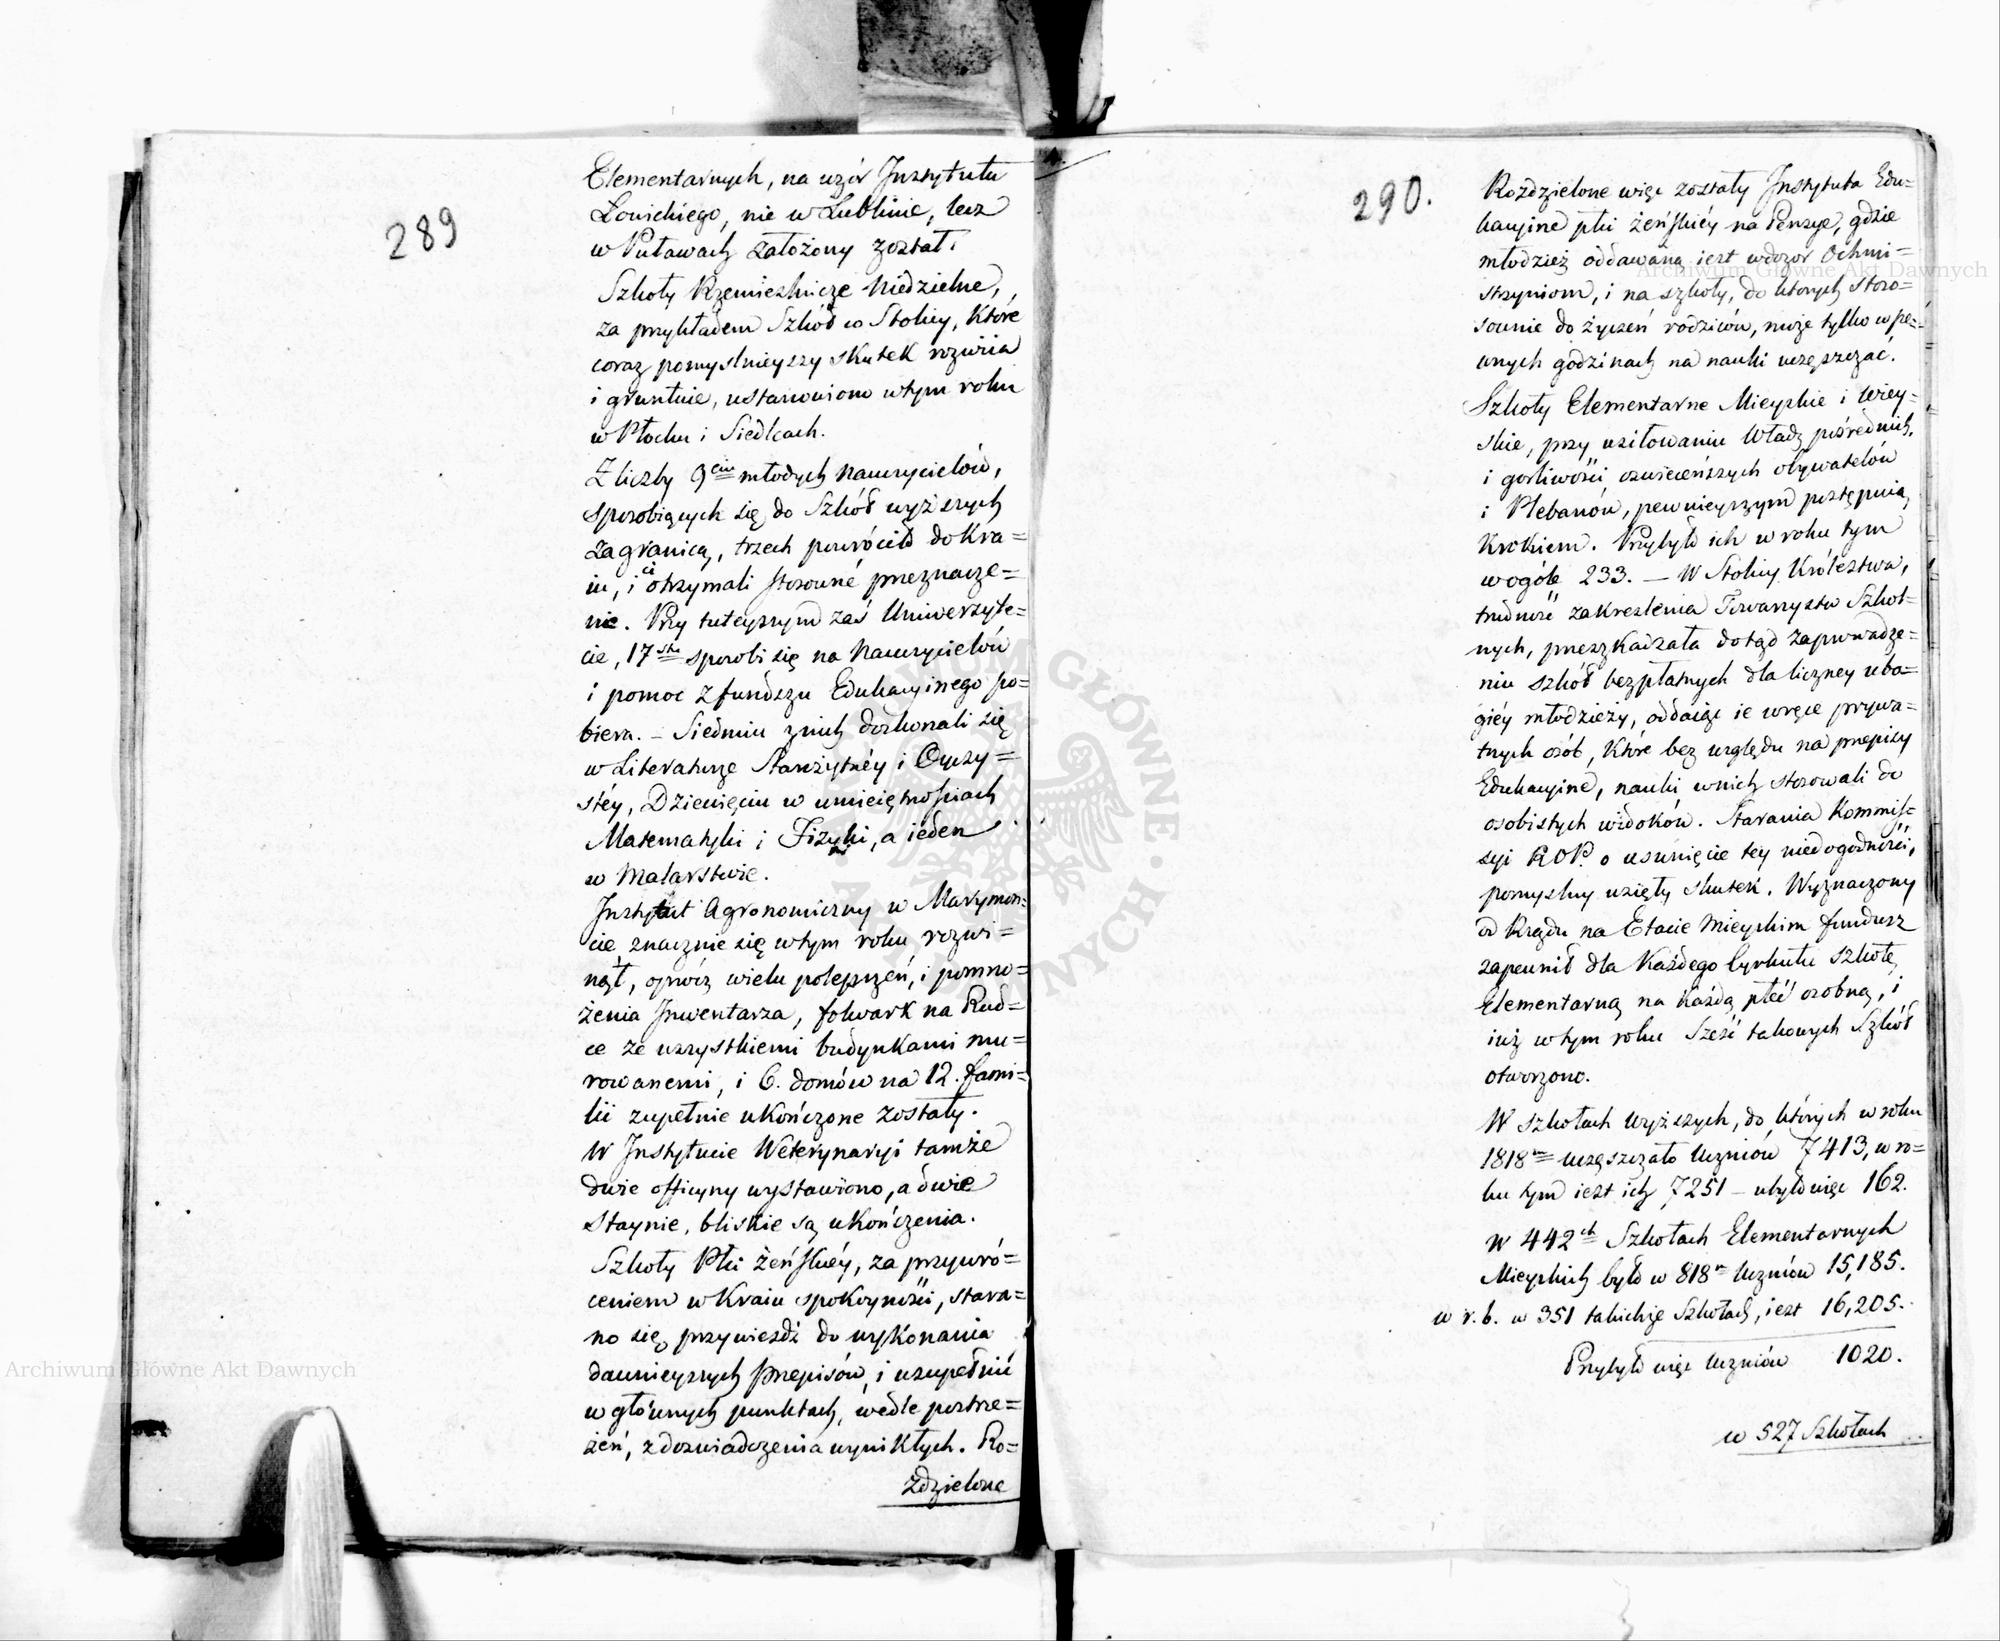 289
Elementarnych, na wzór Instytutu
Łowickiego, nie w Lublinie, lecz
w Puławach założony został.
Szkoły Rzemieslnicze Niedzielne,
za przykładem Szkół w Stolicy, które
coraz pomyslnieyszy skutek rozwiia
i gruntuie, ustanowiono w tym roku
w Płocku i Siedlcach.
Z liczby 9ciu młodych Nauczycielów,
sposobiących się do Szkół wyższych
zagranicą, trzech powróciło do Kra=
iu, i ci otrzymali stosowné przeznacze=
nie. Przy tuteyszym zaś Uniwersyte=
cie, 17stu sposobi się na Nauczycielów
i pomoc z funduszu Edukacyinego po=
biera. – Siedmiu z nich doskonali się
w Literaturze Starożytnéy i Oyczy=
stéy, Dziewięciu w umieiętnościach
Matematyki i Fizyki, a ieden
w Malarstwie.
Instytut Agronomiczny w Marymon=
cie znacznie się w tym roku rozwi=
nął, oprócz wielu polepszeń, i pomno=
żenia Inwentarza, folwark na Rud=
ce ze wszystkiemi budynkami mu=
rowanemi, i 6. domów na 12. fami=
lii zupełnie ukończone zostały.
W Instytucie Weterynaryi tamże
dwie officyny wystawiono, a dwie
Staynie, bliskie są ukończenia.
Szkoły Płci żeńskiéy, za przywró=
ceniem w Kraiu spokoyności, stara=
no się, przywieśdź do wykonania
dawnieyszych przepisów, i uzupełnić
w głównych punktach, wedle postrze=
żeń, z doswiadczenia wynikłych. Ro=
zdzielone
290.
Rozdzielone więc zostały Instytuta Edu=
kacyine płci żeńskiéy na Pensye, gdzie
młodzież oddawana iest w dozór Ochmi=
strzyniom, i na szkoły, do których stoso=
sownie do życzeń rodziców, może tylko w pe=
wnych godzinach na nauki uczęszczać.
Szkoły Elementarne Mieyskie i Wiey=
skie, przy usiłowaniu Władz pośrednich,
i gorliwości oswieceńszych obywatelów
i Plebanów, pewnieyszym postępuią
krokiem. Przybyło ich w roku tym
w ogóle 233. — W Stolicy Królestwa,
trudność zakreslenia Towarzystw Szkol=
nych, przeszkadzała dotąd zaprowadze=
niu szkół bezpłatnych dla liczney ubo=
giéy młodzieży, oddaiąc ie w ręce prywa=
tnych osób, które bez względu na przepisy
Edukacyine, nauki w nich stosowali do
osobistych widoków. Starania Kommis=
syi R.O.P. o usunięcie tey niedogodności,
pomyslny wzięły skutek. Wyznaczony
od Rządu na Etacie Mieyskim fundusz
zapewnił dla każdego Cyrkułu Szkołę
Elementarną na każdą płeć osobną, i
iuż w tym roku sześć takowych Szkół
otworzono.
W szkołach wyższych, do których w roku
1818m uczęszczało Uczniów 7413, w ro=
ku tym iest ich 7251 – ubyło więc 162.
W 442ch Szkołach Elementarnych
Mieyskich było w 818m Uczniów 15,185.
w r. b. w 351 takichże Szkołach, iest 16,205.
Przybyło więc Uczniów 1020.
w 527 Szkołach
Archiwum Główne Akt Dawnych
Archiwum Główne Akt Dawnych